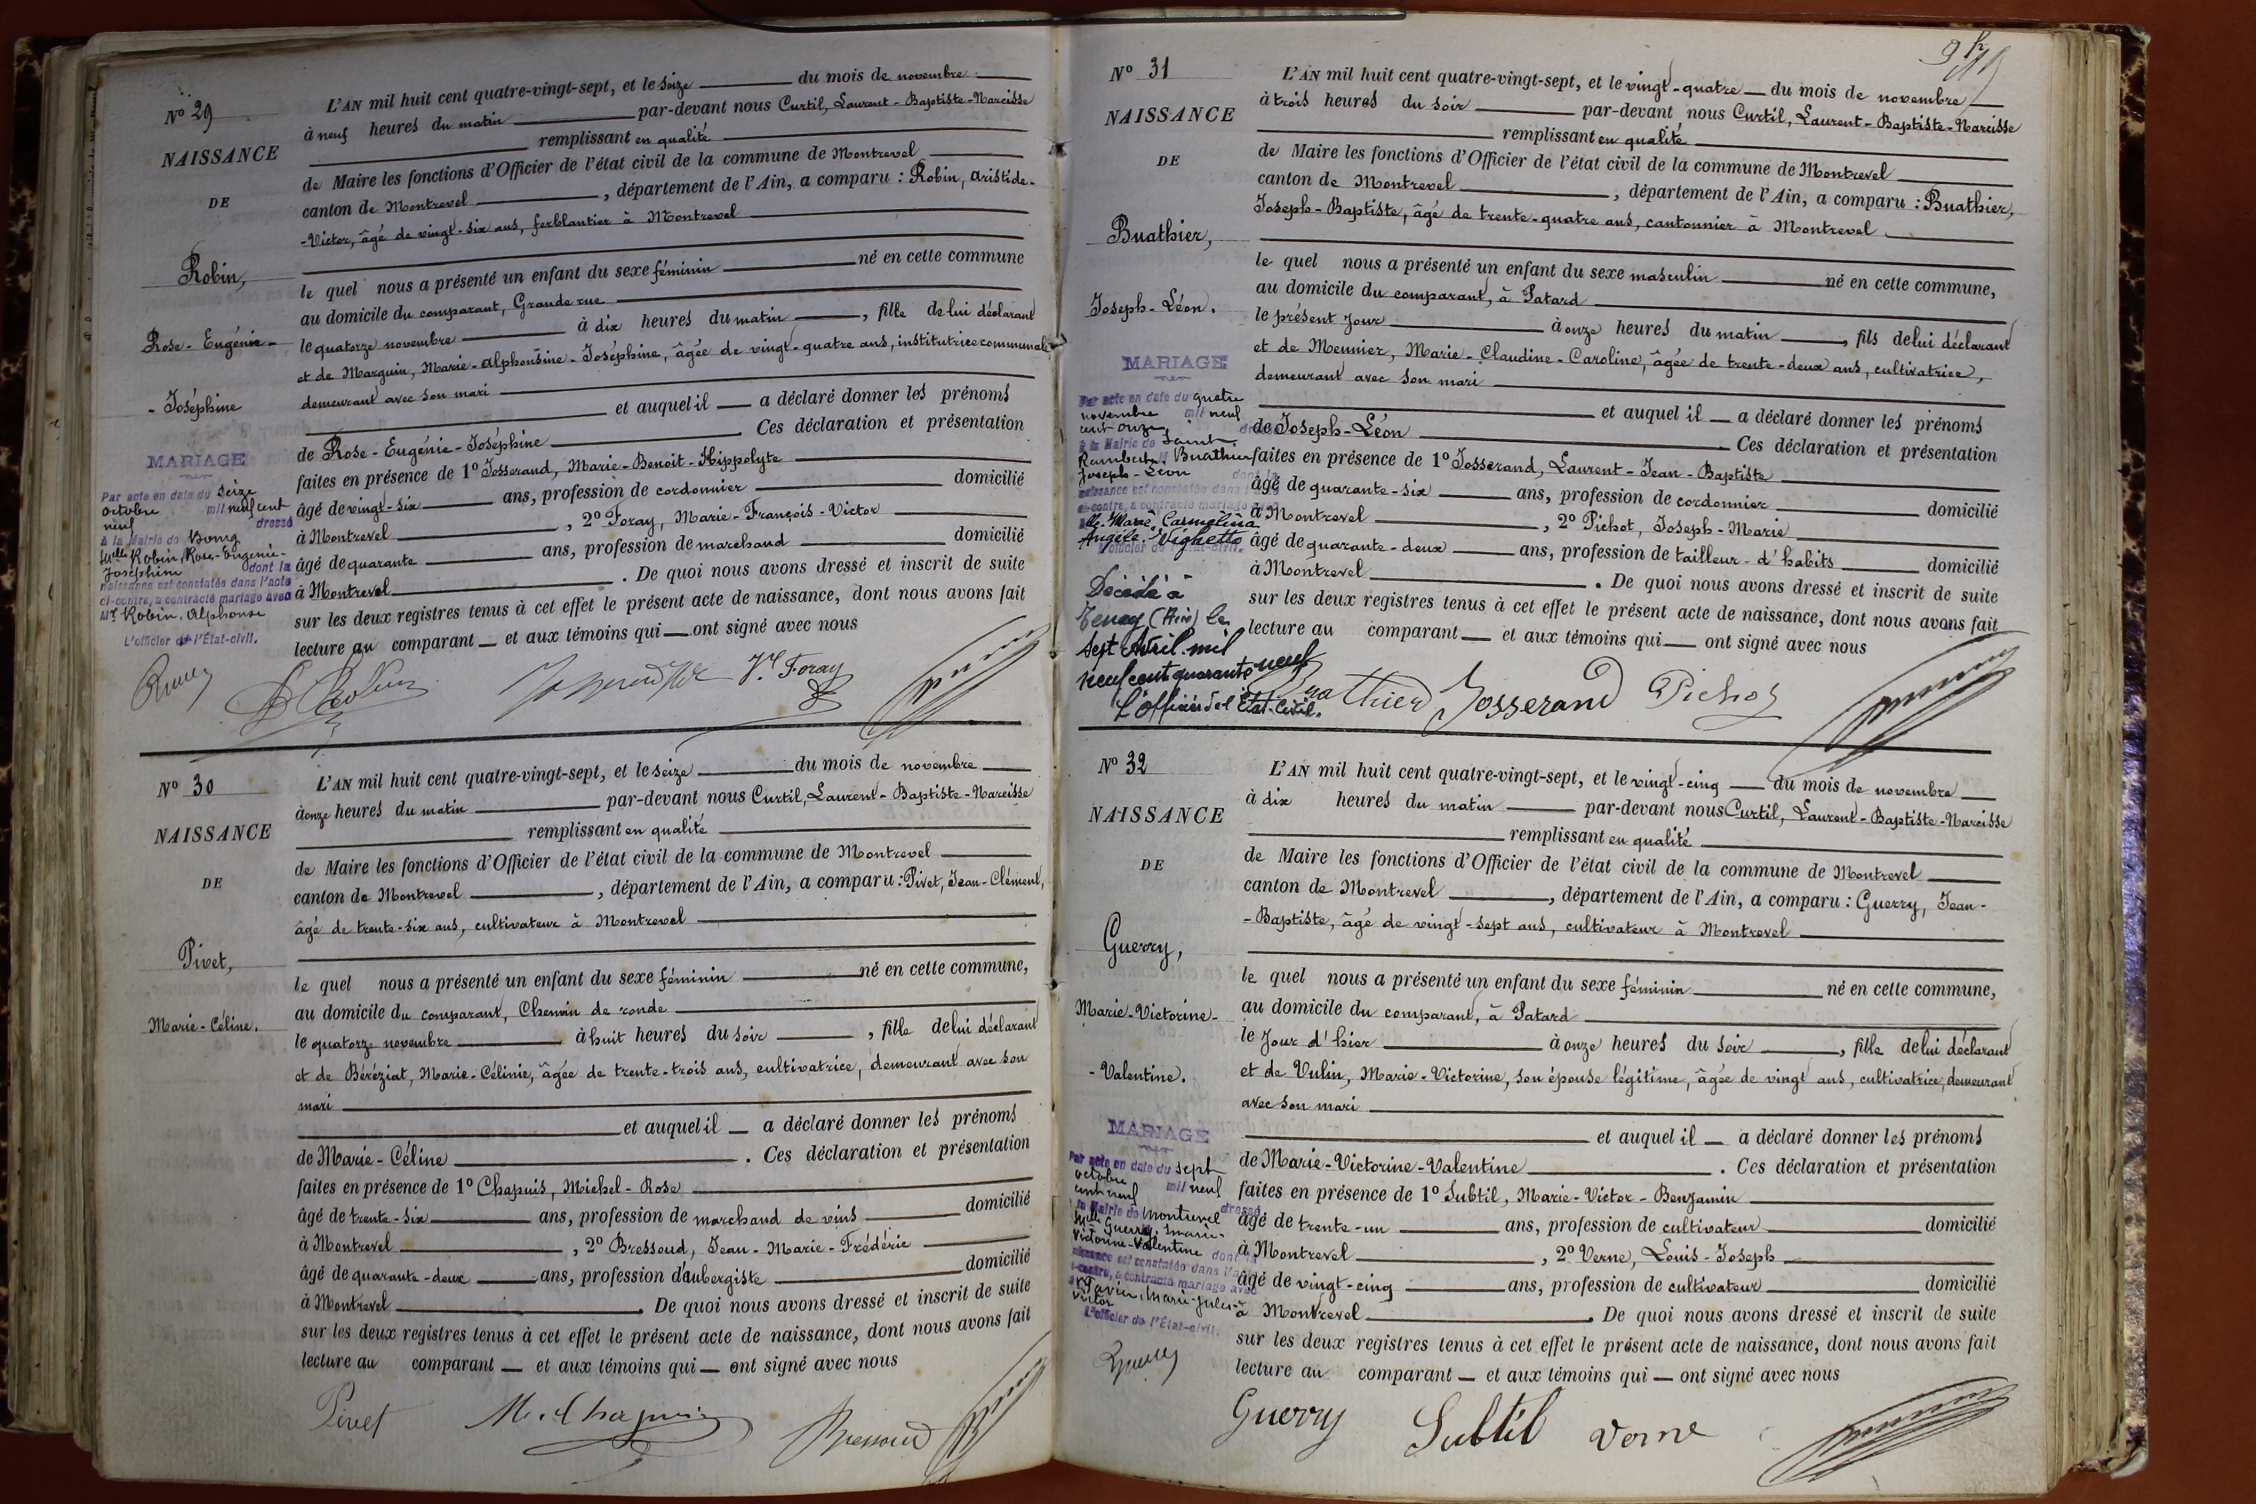 Nº 29
NAISSANCE
DE
Robin,
Rose-Eugénie-
-Joséphine
MARIAGE
Par acte en date du seize
octobre mil neuf cent
neuf dressé
à la Mairie de Bourg
Melle Robin, Rose-Eugénie-
Joséphine dont la
naissance est constatée dans l'acte
ci-contre, a contracté mariage avec
Mr Robin, Alphonse
L'officier de l'État-civil.
L'AN mil huit cent quatre-vingt-sept, et le seize du mois de novembre
à neuf heures du matin par-devant nous Curtil, Laurent-Baptiste-Narcisse
remplissant en qualité
de Maire les fonctions d'Officier de l'état civil de la commune de Montrevel
canton de Montrevel , département de l'Ain, a comparu : Robin, Aristide-
-Victor, âgé de vingt-six ans, ferblantier à Montrevel
le quel nous a présenté un enfant du sexe féminin né en cette commune
au domicile du comparant, Grande rue
le quatorze novembre à dix heures du matin , fille de lui déclarant
et de Marguin, Marie-Alphonsine-Joséphine, âgée de vingt-quatre ans, institutrice communale
demeurant avec son mari
et auquel il a déclaré donner les prénoms
de Rose-Eugénie-Joséphine Ces déclaration et présentation
faites en présence de 1º Josserand, Marie-Benoit-Hippolyte
âgé de vingt-six ans, profession de cordonnier domicilié
à Montrevel , 2º Foray, Marie-François-Victor
âgé de quarante ans, profession de marchand domicilié
à Montrevel . De quoi nous avons dressé et inscrit de suite
sur les deux registres tenus à cet effet le présent acte de naissance, dont nous avons fait
lecture au comparant et aux témoins qui ont signé avec nous
Vr Foray
Nº 30
NAISSANCE
DE
Pivet,
Marie-Céline.
L'AN mil huit cent quatre-vingt-sept, et le seize du mois de novembre
à onze heures du matin par-devant nous Curtil, Laurent-Baptiste-Narcisse
remplissant en qualité
de Maire les fonctions d'Officier de l'état civil de la commune de Montrevel
canton de Montrevel , département de l'Ain, a comparu : Pivet, Jean-Clément,
âgé de trente-six ans, cultivateur à Montrevel
le quel nous a présenté un enfant du sexe féminin né en cette commune,
au domicile du comparant, Chemin de ronde
le quatorze novembre à huit heures du soir , fille de lui déclarant
et de Béréziat, Marie-Célinie, âgée de trente-trois ans, cultivatrice, demeurant avec son
mari
et auquel il a déclaré donner les prénoms
de Marie-Céline . Ces déclaration et présentation
faites en présence de 1º Chapuis, Michel-Rose
âgé de trente-six ans, profession de marchand de vins domicilié
à Montrevel , 2º Bressoud, Jean-Marie-Frédéric
âgé de quarante-deux ans, profession d'aubergiste domicilié
à Montrevel . De quoi nous avons dressé et inscrit de suite
sur les deux registres tenus à cet effet le présent acte de naissance, dont nous avons fait
lecture au comparant et aux témoins qui ont signé avec nous
Pivet M. Chapuis Bressoud
Nº 31
NAISSANCE
DE
Buathier,
Joseph-Léon.
MARIAGE
Par acte en date du quatre
novembre mil neuf
cent onze,
à la Mairie de Saint
Rambert Mr Buathier
Joseph-Léon dont la
naissance est constatée dans l'acte
ci-contre, a contracté mariage
Melle Marie, Carmelina
Angèle. Vighetto
L'officier de l'État-civil.
Décédé à
Tenay (Ain) le
sept Avril mil
neuf cent quarante neuf
L'officier de l'État-Civil.
L'AN mil huit cent quatre-vingt-sept, et le vingt-quatre du mois de novembre
à trois heures du soir par-devant nous Curtil, Laurent-Baptiste-Narcisse
remplissant en qualité
de Maire les fonctions d'Officier de l'état civil de la commune de Montrevel
canton de Montrevel , département de l'Ain, a comparu : Buathier,
Joseph-Baptiste, âgé de trente-quatre ans, cantonnier à Montrevel
le quel nous a présenté un enfant du sexe masculin né en cette commune,
au domicile du comparant, à Patard
le présent jour à onze heures du matin , fils de lui déclarant
et de Meunier, Marie-Claudine-Caroline, âgée de trente-deux ans, cultivatrice,
demeurant avec son mari
et auquel il a déclaré donner les prénoms
de Joseph-Léon Ces déclaration et présentation
faites en présence de 1º Josserand, Laurent-Jean-Baptiste
âgé de quarante-six ans, profession de cordonnier domicilié
à Montrevel , 2º Pichot, Joseph-Marie
âgé de quarante-deux ans, profession de tailleur-d'habits domicilié
à Montrevel . De quoi nous avons dressé et inscrit de suite
sur les deux registres tenus à cet effet le présent acte de naissance, dont nous avons fait
lecture au comparant et aux témoins qui ont signé avec nous
Buathier Josserand Pichot
Nº 32
NAISSANCE
DE
Guerry,
Marie-Victorine-
-Valentine.
MARIAGE
Par acte en date du sept
octobre mil neuf
cent neuf dressé
à la Mairie de Montrevel
Melle Guerry, Marie-
Victorine-Valentine dont la
naissance est constatée dans l'acte
ci-contre, a contracté mariage avec
Marie-Jules-
Victor
L'officier de l'État-civil.
L'AN mil huit cent quatre-vingt-sept, et le vingt-cinq du mois de novembre
à dix heures du matin par-devant nous Curtil, Laurent-Baptiste-Narcisse
remplissant en qualité
de Maire les fonctions d'Officier de l'état civil de la commune de Montrevel
canton de Montrevel , département de l'Ain, a comparu : Guerry, Jean-
-Baptiste, âgé de vingt-sept ans, cultivateur à Montrevel
le quel nous a présenté un enfant du sexe féminin né en cette commune,
au domicile du comparant, à Patard
le jour d'hier à onze heures du soir , fille de lui déclarant
et de Vulin, Marie-Victorine, son épouse légitime, âgée de vingt ans, cultivatrice, demeurant
avec son mari
et auquel il a déclaré donner les prénoms
de Marie-Victorine-Valentine . Ces déclaration et présentation
faites en présence de 1º Subtil, Marie-Victor-Benjamin
âgé de trente-un ans, profession de cultivateur domicilié
à Montrevel , 2º Verne, Louis-Joseph
âgé de vingt-cinq ans, profession de cultivateur domicilié
à Montrevel . De quoi nous avons dressé et inscrit de suite
sur les deux registres tenus à cet effet le présent acte de naissance, dont nous avons fait
lecture au comparant et aux témoins qui ont signé avec nous
Guerry Subtil Verne